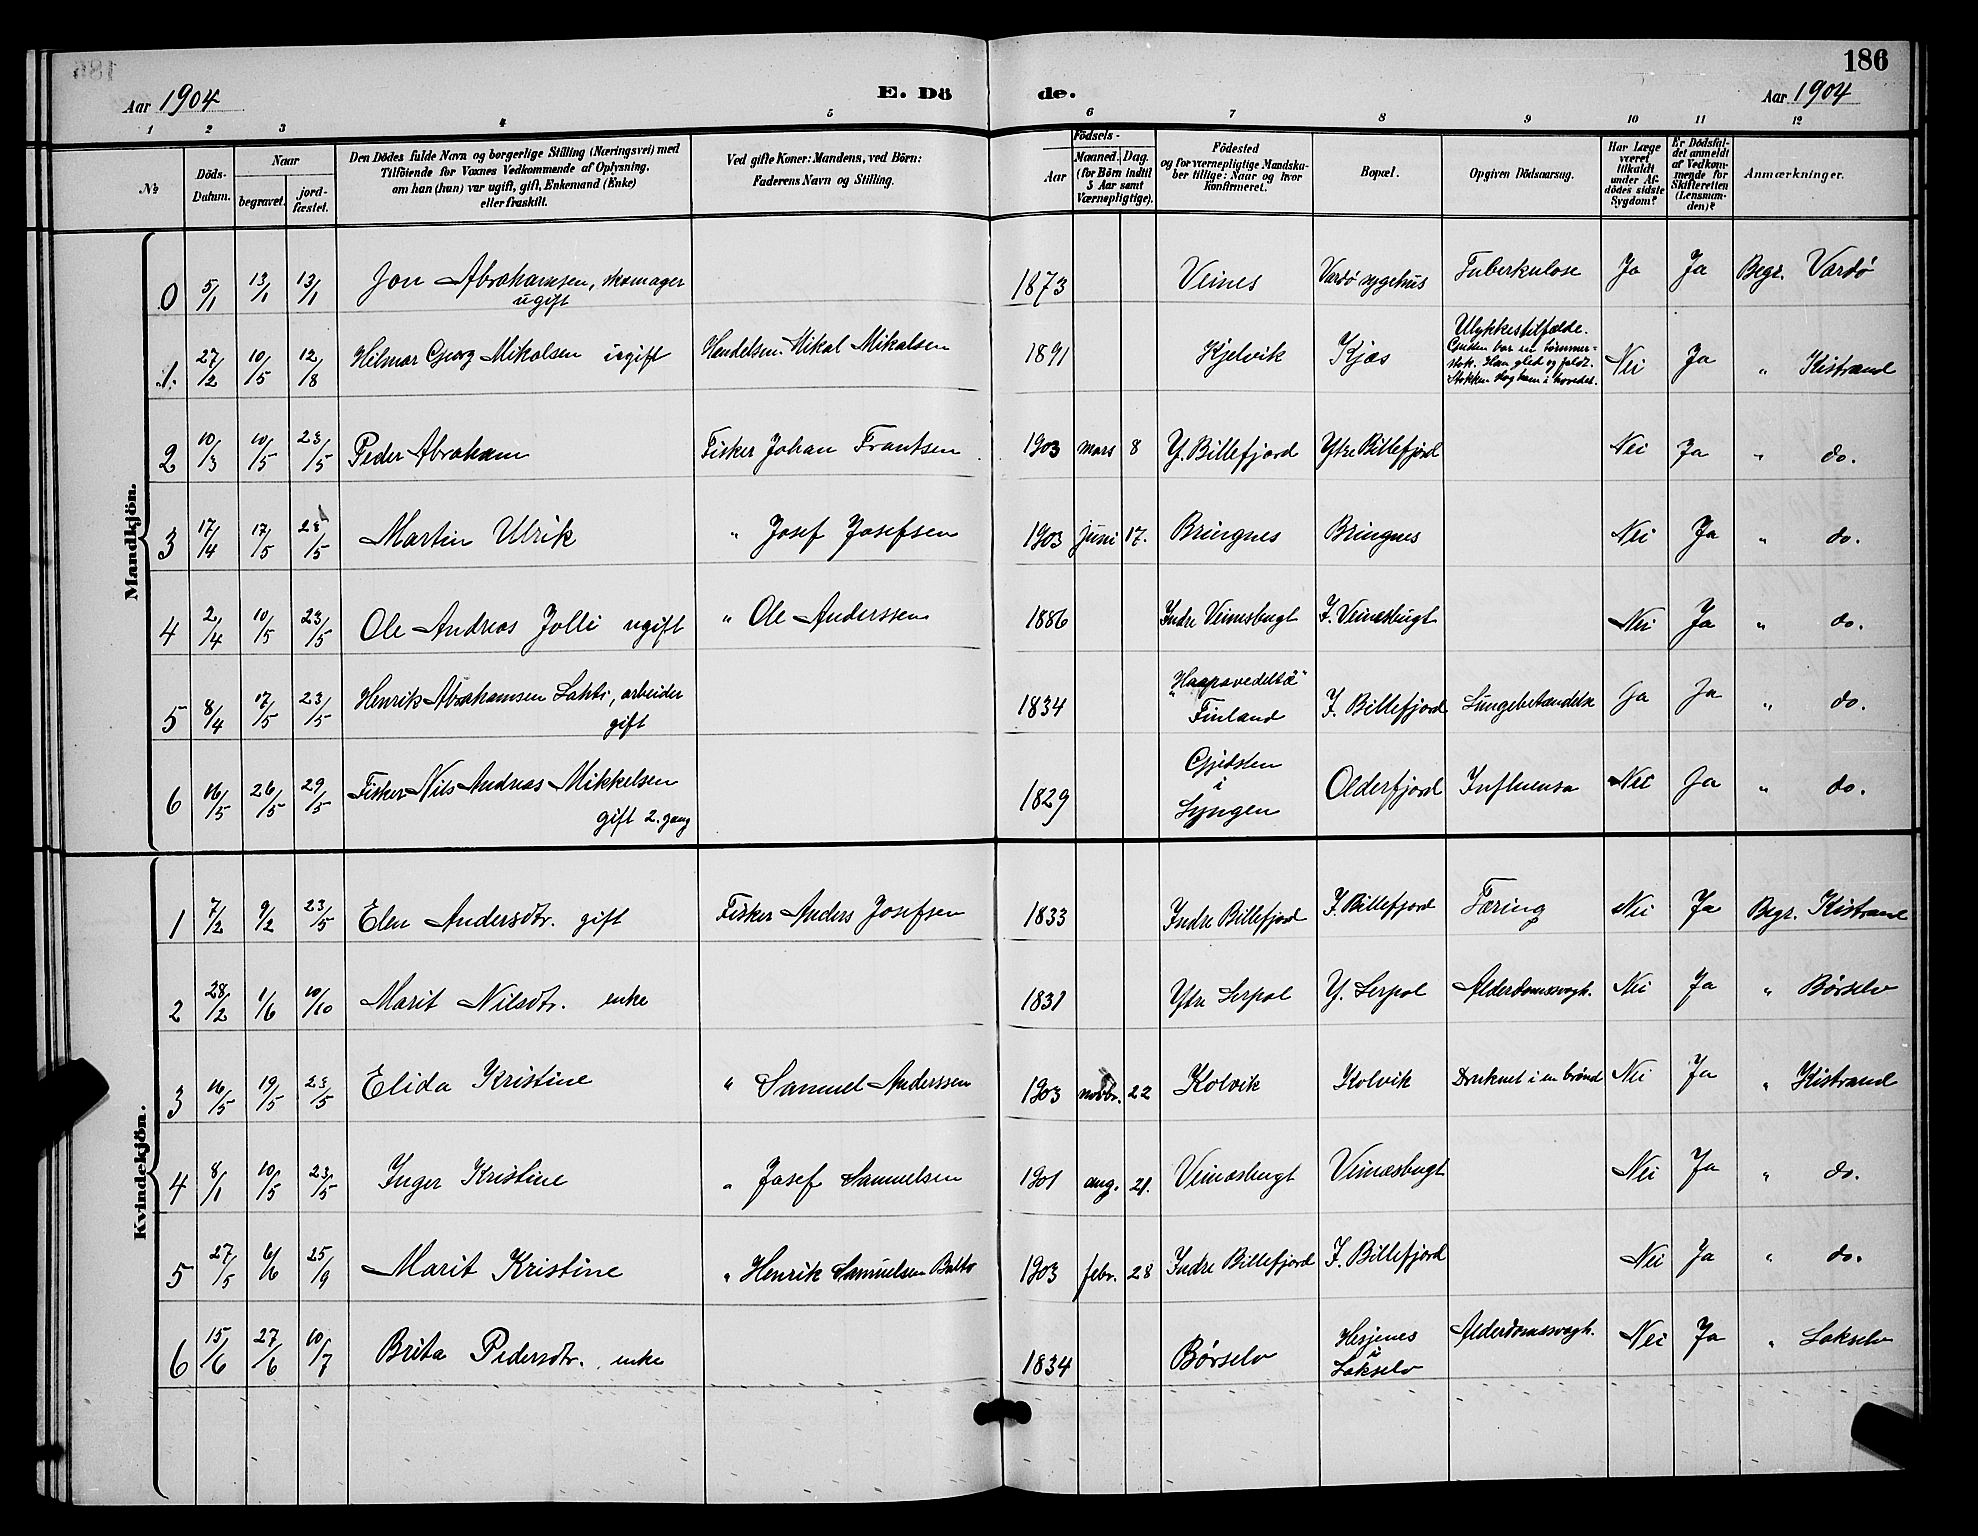 186
Aar 1904
E. Dö
de.
Aar 1904
1 2 3 4 5 6 7 8 9 10 11 12
№
Döds-Datum.
Naar
begravet.
jord-fæstet.
Den Dödes fulde Navn og borgerlige Stilling (Næringsvei) med
Tilföiende for Voxnes Vedkommende af Oplysning,
om han (hun) var ugift, gift, Enkemand (Enke)
eller fraskilt.
Ved gifte Koner: Mandens, ved Börn:
Faderens Navn og Stilling.
Födsels-
Aar
Maaned. Dag.
(for Börn indtil
5 Aar samt
Værnepligtige).
Födested
og for værnepligtige Mandska-
ber tillige: Naar og hvor
konfirmeret.
Bopæl.
Opgiven Dödsaarsag.
Har Læge
været
tilkaldt
under Af-
dödes sidste
Sygdom?
Er Dödsfal-
det anmeldt
af Vedkom-
mende for
Skifteretten
(Lensman-
den)?
Anmærkninger.
Mandkjön.
0 5/1 13/1 13/1 Jon Abrahamsen, skomager ugift 1873 Veines Vardö sygehus Tuberkulose Ja Ja Begr. Vardö
1. 27/2 10/5 12/8 Hilmar Georg Mikalsen ugift Handelsm. Mikal Mikalsen 1891 Kjelvik Kjæs Ulykkestilfælde.
Gutten bar en tömmer-
stok. Han gled og faldt.
Stokken slog ham i hovedet. Nei Ja " Kistrand
2 10/3 10/5 23/5 Peder Abraham Fisker Johan Frantsen 1903 mars 8 Y. Billefjord Ytre Billefjord Nei Ja " do.
3 17/4 17/5 23/5 Martin Ulrik " Josef Josefsen 1903 juni 17. Bringnes Bringnes Nei Ja " do.
4 2/4 10/5 23/5 Ole Andreas Jolli ugift " Ole Anderssen 1886 Indre Veinesbugt I. Veinesbugt Nei Ja " do.
5 8/4 17/5 23/5 Henrik Abrahamsen Lahti, arbeider gift 1834 "Haapavedeltä" Finland I. Billefjord Lungebetændelse Ja Ja " do.
6 16/5 26/5 29/5 Fisker Nils Andreas Mikkelsen gift 2. gang 1829 Gjedsten i Lyngen Olderfjord Influensa Nei Ja " do.
Kvindekjön.
1 7/2 9/2 23/5 Elen Andersdtr. gift Fisker Anders Josefsen 1833 Indre Billefjord I. Billefjord Tæring Nei Ja Begr. Kistrand
2 28/2 1/6 10/10 Marit Nilsdtr. enke 1831 Ytre Lerpol Y. Lerpol Alderdomssvagh. Nei Ja " Børselv
3 16/5 19/5 23/5 Elida Kristine " Samuel Anderssen 1903 novbr. 22 Kolvik Kolvik Druknet i en brønd Nei Ja " Kistrand
4 8/1 10/5 23/5 Inger Kristine " Josef Samuelsen 1901 aug. 21. Veinesbugt Veinesbugt Nei Ja " do.
5 27/5 6/6 25/9 Marit Kristine " Henrik Samuelsen Balto 1903 febr. 28 Indre Billefjord I. Billefjord Nei Ja " do.
6 15/6 27/6 10/7 Brita Pedersdtr. enke 1834 Børselv Hesjenes i Lakselv Alderdomssvagh. Nei Ja " Lakselv